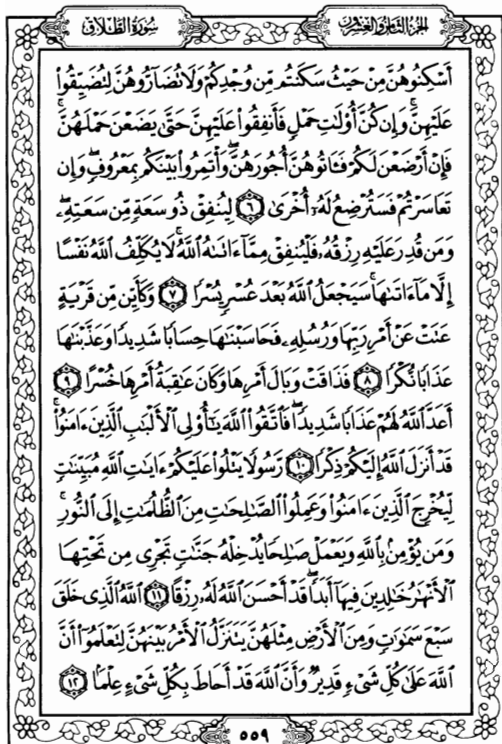 سورة الطلاق
الجزء الثامن والعشرون
أَسْكِنُوهُنَّ مِنْ حَيْثُ سَكَنتُم مِّن وُجْدِكُمْ وَلَا تُضَآرُّوهُنَّ لِتُضَيِّقُوا۟
عَلَيْهِنَّ ۚ وَإِن كُنَّ أُو۟لَٰتِ حَمْلٍ فَأَنفِقُوا۟ عَلَيْهِنَّ حَتَّىٰ يَضَعْنَ حَمْلَهُنَّ ۚ
فَإِنْ أَرْضَعْنَ لَكُمْ فَـَٔاتُوهُنَّ أُجُورَهُنَّ ۖ وَأْتَمِرُوا۟ بَيْنَكُم بِمَعْرُوفٍ ۖ وَإِن
تَعَاسَرْتُمْ فَسَتُرْضِعُ لَهُۥٓ أُخْرَىٰ ٦ لِيُنفِقْ ذُو سَعَةٍ مِّن سَعَتِهِۦ ۖ
وَمَن قُدِرَ عَلَيْهِ رِزْقُهُۥ فَلْيُنفِقْ مِمَّآ ءَاتَىٰهُ ٱللَّهُ ۚ لَا يُكَلِّفُ ٱللَّهُ نَفْسًا
إِلَّا مَآ ءَاتَىٰهَا ۚ سَيَجْعَلُ ٱللَّهُ بَعْدَ عُسْرٍ يُسْرًا ٧ وَكَأَيِّن مِّن قَرْيَةٍ
عَتَتْ عَنْ أَمْرِ رَبِّهَا وَرُسُلِهِۦ فَحَاسَبْنَٰهَا حِسَابًا شَدِيدًا وَعَذَّبْنَٰهَا
عَذَابًا نُّكْرًا ٨ فَذَاقَتْ وَبَالَ أَمْرِهَا وَكَانَ عَٰقِبَةُ أَمْرِهَا خُسْرًا ٩
أَعَدَّ ٱللَّهُ لَهُمْ عَذَابًا شَدِيدًا ۖ فَٱتَّقُوا۟ ٱللَّهَ يَٰٓأُو۟لِى ٱلْأَلْبَٰبِ ٱلَّذِينَ ءَامَنُوا۟ ۚ
قَدْ أَنزَلَ ٱللَّهُ إِلَيْكُمْ ذِكْرًا ١٠ رَّسُولًا يَتْلُوا۟ عَلَيْكُمْ ءَايَٰتِ ٱللَّهِ مُبَيِّنَٰتٍ
لِّيُخْرِجَ ٱلَّذِينَ ءَامَنُوا۟ وَعَمِلُوا۟ ٱلصَّٰلِحَٰتِ مِنَ ٱلظُّلُمَٰتِ إِلَى ٱلنُّورِ ۚ
وَمَن يُؤْمِنۢ بِٱللَّهِ وَيَعْمَلْ صَٰلِحًا يُدْخِلْهُ جَنَّٰتٍ تَجْرِى مِن تَحْتِهَا
ٱلْأَنْهَٰرُ خَٰلِدِينَ فِيهَآ أَبَدًا ۖ قَدْ أَحْسَنَ ٱللَّهُ لَهُۥ رِزْقًا ١١ ٱللَّهُ ٱلَّذِى خَلَقَ
سَبْعَ سَمَٰوَٰتٍ وَمِنَ ٱلْأَرْضِ مِثْلَهُنَّ يَتَنَزَّلُ ٱلْأَمْرُ بَيْنَهُنَّ لِتَعْلَمُوٓا۟ أَنَّ
ٱللَّهَ عَلَىٰ كُلِّ شَىْءٍ قَدِيرٌ وَأَنَّ ٱللَّهَ قَدْ أَحَاطَ بِكُلِّ شَىْءٍ عِلْمًۢا ١٢
٥٥٩